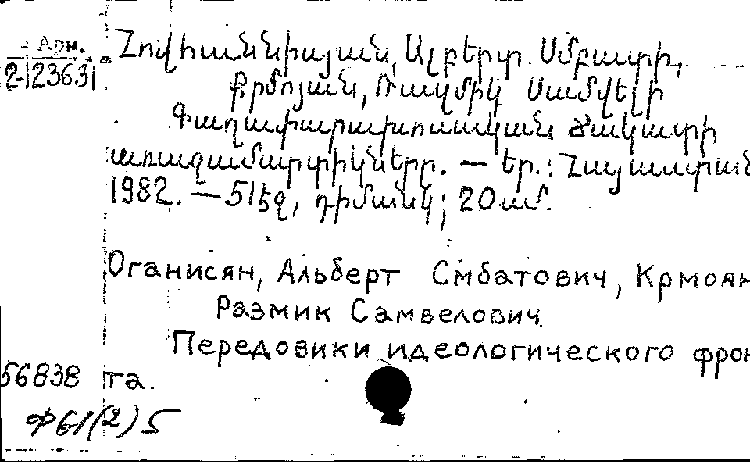 Арм. Հովհաննիսյան, Ալբերտ Սմբատի,
2-123631 Քրմոյան, Ռազմիկ Սամվելի
Գաղափարախոսական ճակատի
առաջամարտիկները. — Եր.: Հայաստան
1982. — 515 էջ, դիմանկ; 20 սմ.
Оганисян, Альберт Смбатович, Крмоян
Размик Самвелович
Передовики идеологического фрон
56838 та.
Ф61(2)5